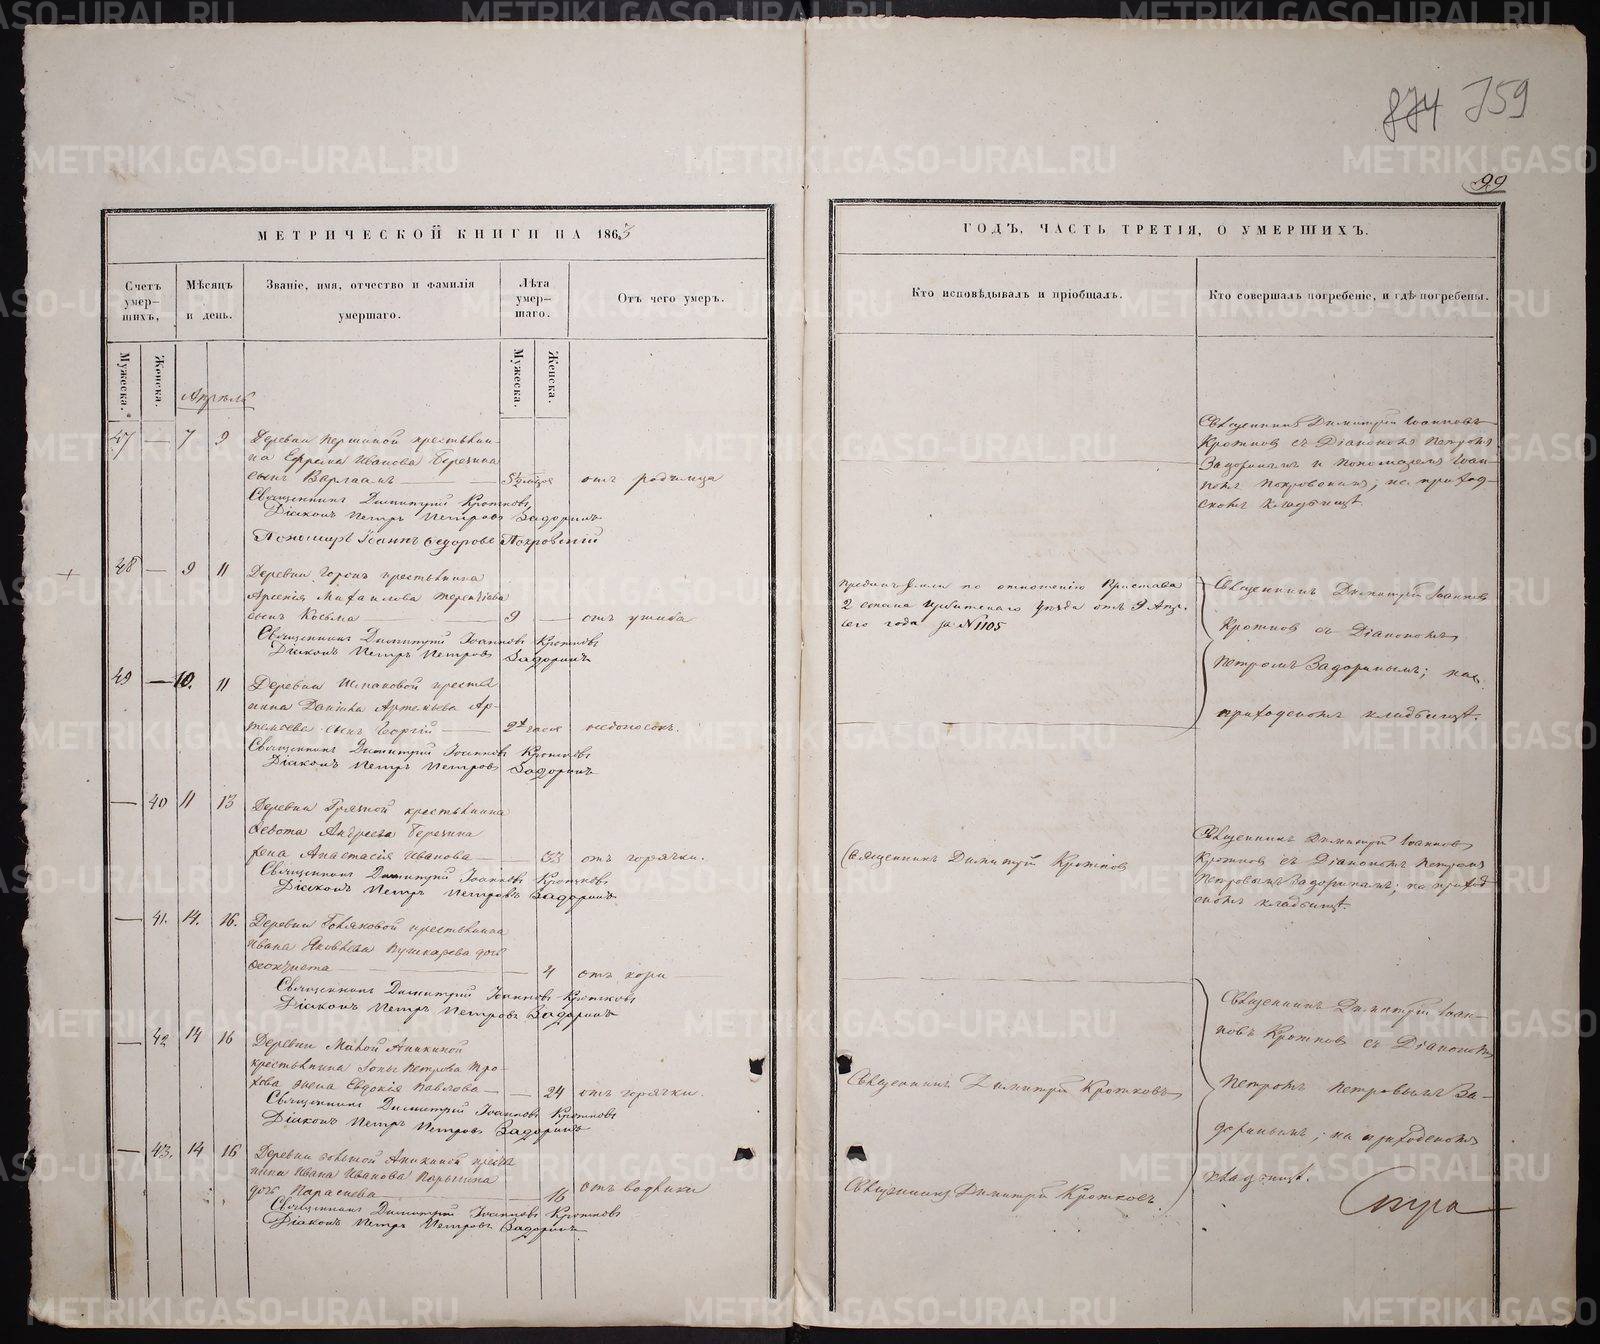 874 759
99
МЕТРИЧЕСКОЙ КНИГИ НА 1863
ГОДЪ, ЧАСТЬ ТРЕТІЯ, О УМЕРШИХЪ.
Счетъ умер-
шихъ,
Мѣсяцъ
и день.
Званіе, имя, отчество и фамилія
умершаго.
Лѣта
умер-
шаго.
Отъ чего умеръ.
Кто исповѣдывалъ и пріобщалъ.
Кто совершалъ погребеніе, и гдѣ погребены.
Мужеска.
Женска.
Мужеска.
Женска.
Апрѣль
47 — 7 9
Деревни Першиной крестьяни-
на Ефрема Иванова Березина
сынъ Варлаамъ
отъ родимца
Священникъ Димитрій Кротковъ
Діаконъ Петръ Петровъ Задоринъ
Пономарь Іоаннъ Ѳедоровъ Покровскій
Священникъ Димитрій Іоанновъ
Кротковъ съ Діакономъ Петромъ
Задоринымъ и пономаремъ Іоан-
номъ Покровскимъ; на приход-
скомъ кладбищѣ.
48 — 9 11
Деревни крестьянина
Арсенія Михаилова Терентіева
сынъ Косьма 9 отъ ушиба
Священникъ Димитрій Іоанновъ Кротковъ
Діаконъ Петръ Петровъ Задоринъ
Преданъ земли по отношенію Пристава
2 стана Ирбитскаго уѣзда отъ 9 Апр.
сего года за № 1105
Священникъ Димитрій Іоанновъ
Кротковъ съ Діакономъ
Петромъ Задоринымъ; на
приходскомъ кладбищѣ.
49 — 10. 11
Деревни Шмаковой крестья
нина Артемьева Ар-
темьева сынъ Георгій 2 часа недоносокъ.
Священникъ Димитрій Іоанновъ Кротковъ
Діаконъ Петръ Петровъ Задоринъ
— 40 11 13
Деревни Грязной крестьянина
Андреева Березина
жена Анастасія Иванова 33 отъ горячки.
Священникъ Димитрій Іоанновъ Кротковъ
Діаконъ Петръ Петровъ Задоринъ
Священникъ Димитрій Кротковъ
Священникъ Димитрій Іоанновъ
Кротковъ съ Діакономъ Петромъ
Петровымъ Задоринымъ; на приход
скомъ кладбищѣ.
— 41. 14. 16.
Деревни крестьянина
Ивана Яковлева Пушкарева дочь
Ѳеоктиста 4 отъ кори
Священникъ Димитрій Іоанновъ Кротковъ
Діаконъ Петръ Петровъ Задоринъ
Священникъ Димитрій Іоан-
новъ Кротковъ съ Діакономъ
Петромъ Петровымъ За-
доринымъ; на приходскомъ
кладбищѣ.
— 42 14 16
Деревни Малой Аникиной
крестьянина Петрова Тро-
хова жена Евдокія Павлова 24 отъ горячки.
Священникъ Димитрій Іоанновъ Кротковъ
Діаконъ Петръ Петровъ Задоринъ
Священникъ Димитрій Кротковъ
— 43. 14 16
Деревни Большой Аникиной кресть
нина Ивана Иванова
дочь Параскева 16 отъ водянки
Священникъ Димитрій Іоанновъ Кротковъ
Діаконъ Петръ Петровъ Задоринъ
Священникъ Димитрій Кротковъ.
METRIKI.GASO-URAL.RU